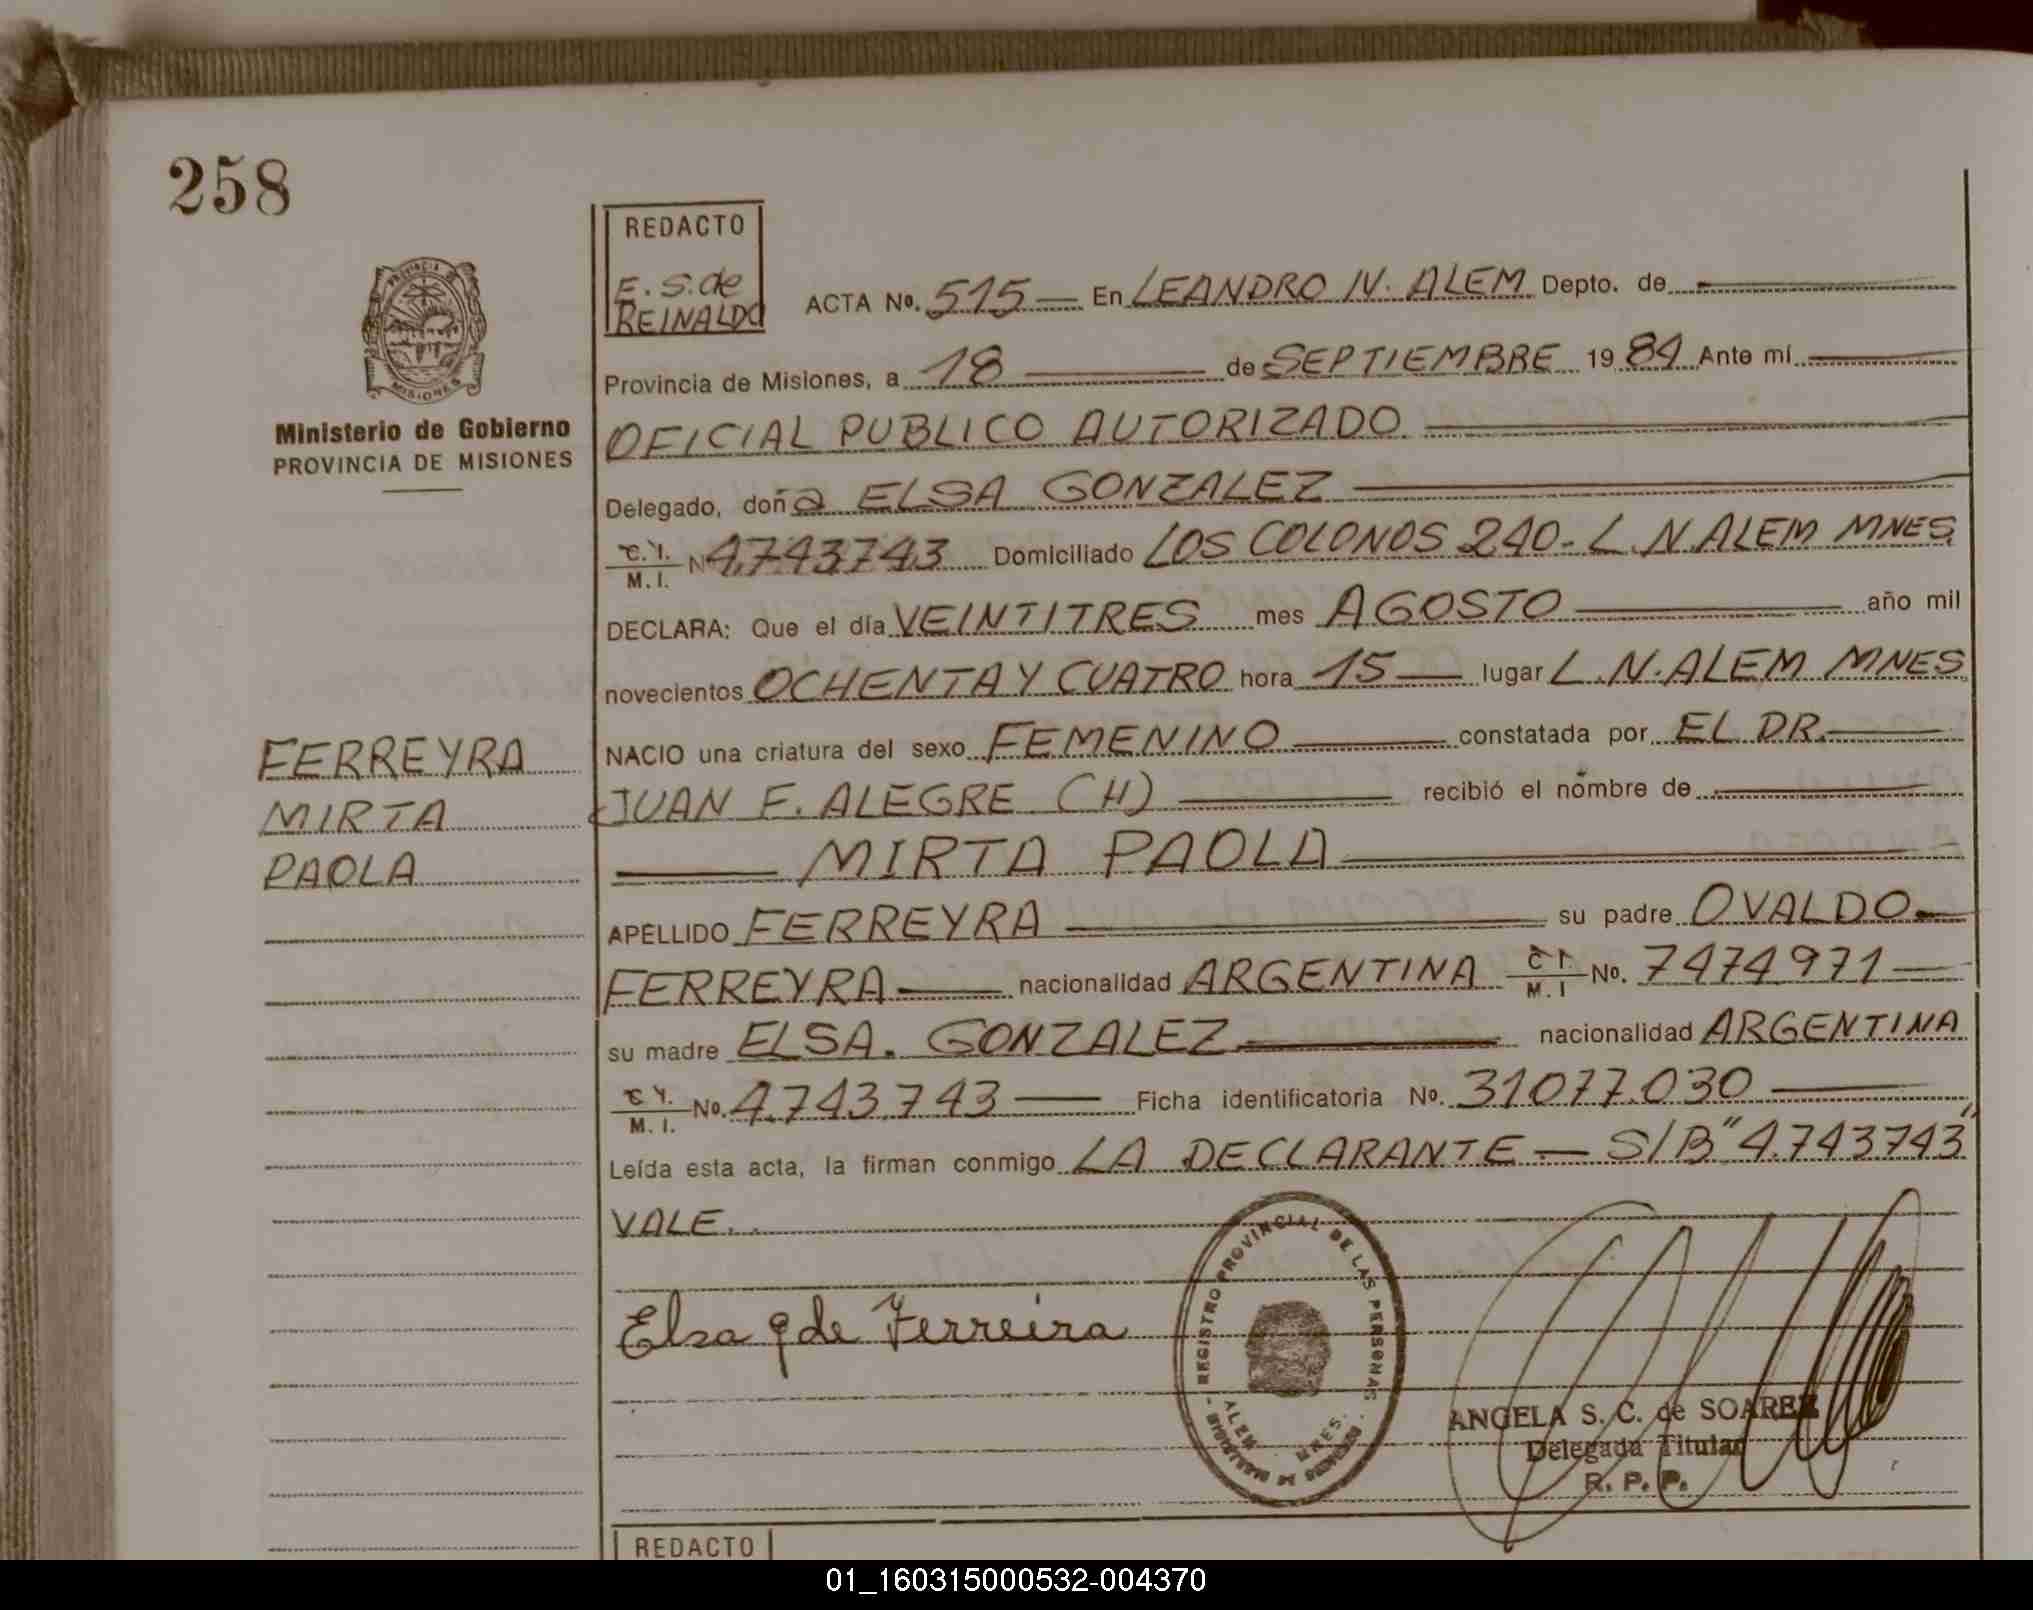 258
REDACTO
E. S. de
REINALDO
ACTA Nº. 515 En LEANDRO N. ALEM Depto. de
Provincia de Misiones, a 18 de SEPTIEMBRE 1984 Ante mí
OFICIAL PUBLICO AUTORIZADO
Ministerio de Gobierno
PROVINCIA DE MISIONES
Delegado, doña ELSA GONZALEZ
C. I.
M. I. Nº 4.743.743 Domiciliado LOS COLONOS 240 - L. N. ALEM MNES.
DECLARA: Que el día VEINTITRES mes AGOSTO año mil
novecientos OCHENTA Y CUATRO hora 15 lugar L. N. ALEM MNES.
NACIO una criatura del sexo FEMENINO constatada por EL DR.
JUAN F. ALEGRE (H) recibió el nombre de
MIRTA PAOLA
FERREYRA
MIRTA
PAOLA
APELLIDO FERREYRA su padre OVALDO
FERREYRA nacionalidad ARGENTINA C. I.
M. I Nº. 7474971
su madre ELSA. GONZALEZ nacionalidad ARGENTINA
C. I.
M. I. Nº. 4.743.743 Ficha identificatoria Nº. 31.077.030
Leída esta acta, la firman conmigo LA DECLARANTE - S/B "4.743743"
VALE.
Elsa g de Ferreira
REGISTRO PROVINCIAL DE LAS PERSONAS
ALEM MNES.
ANGELA S. C. de SOAREZ
Delegada Titular
R. P. P.
REDACTO
01_160315000532-004370